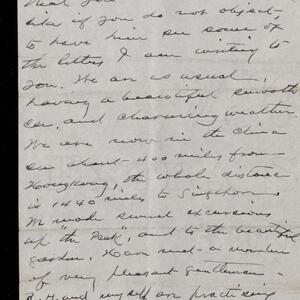 like if you do not object,
to have him see some of
the letters I am writing to
you. We are as usual,
having a beautiful smooth
sea, and charming weather.
We are now in the China
sea about 400 miles from
Hongkong, the whole distance
is 1440 miles to Singapore.
We made several excursions
up "the Peak", and to the beautiful
garden. Have met a number
of very pleasant gentlemen
B. H. and myself are practising